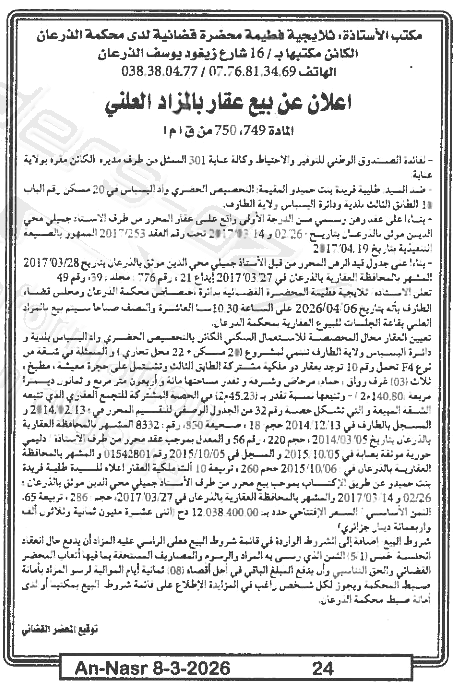 مكتب الأستاذة: ثلايجية فطيمة محضرة قضائية لدى محكمة الذرعان
الكائن مكتبها بـ / 16 شارع زيغود يوسف الذرعان
الهاتف 07.76.81.34.69 / 038.38.04.77
اعلان عن بيع عقار بالمزاد العلني
المادة 749، 750 من ق ا م ا
- لفائدة الصندوق الوطني للتوفير والاحتياط وكالة عنابة 301 الممثل من طرف مديره الكائن مقره بولاية
عنابة
- ضد السيد طلبية فريدة بنت حميدو المقيمة: التحصيص الحضري واد البسباس في 20 مسكن رقم الباب
الطابق الثالث بلدية ودائرة البسباس ولاية الطارف.
- بناءا على عقد رهن رسمي من الدرجة الأولى واقع على عقار المحرر من طرف الاستاذ جميلي محي
الدين موثق بالذرعان بتاريخ 02/26 و 14 03 2017 تحت رقم العقد 2017/253 الممهور بالصيغة
التنفيذية بتاريخ 19 04 2017.
- بناءا على جدول قيد الرهن المحرر من قبل الأستاذ جميلي محي الدين موثق بالذرعان بتاريخ 2017/03/28
المشهر بالمحافظة العقارية بالذرعان في 2017/03/27 إيداع 21، رقم 776، مجلد 39، رقم 49
تعلن الاستاذة ثلايجية فطيمة المحضرة القضائية بدائرة اختصاص محكمة الذرعان ومجلس قضاء
الطارف بأنه بتاريخ 2026/04/06 على الساعة 10.30 سا العاشرة والنصف صباحا سيتم بيع بالمزاد
العلني بقاعة الجلسات للبيوع العقارية بمحكمة الذرعان.
تعيين العقار محال المخصصة للاستعمال السكني الكائن بالتحصيص الحضري واد البسباس بلدية و
دائرة البسباس ولاية الطارف تسمى لمشروع (20 مسكن + 22 محل تجاري) و المتمثلة في شقة من
نوع F4 تحمل رقم 10 توجد بعقار ذو ملكية مشتركة الطابق الثالث وتشتمل على حجرة معيشة، مطبخ،
ثلاث (03) غرف رواق، حمام، مرحاض وشرفة و تقدر مساحتها مائة و أربعون متر مربع و ثمانون ديسمتر
مربعة (140.80م2) - وتتبعها نسبة تقدر بـ (45.23م2) من الحصة المشتركة للتجمع العقاري الذي تتبعه
الشقة المبيعة و التي تشكل حصة رقم 32 من الجدول الوصفي للتقسيم المحرر في 13 02 2014 و
المسجل بالطارف في 2014/12/13 حجم 18، صحيفة 850، رقم: 8332 المشهر بالمحافظة العقارية
بالذرعان بتاريخ 2014/03/05، حجم 220، رقم 56 و المعدل بموجب عقد محرر من طرف الاستاذة دليمي
حورية موثقة بعنابة في 05 10 2015 و المسجل في 2015/10/05 رقم 01542801 و المشهر بالمحافظة
العقارية بالذرعان في 2015/10/06 حجم 260، تربيعة 10 آلت ملكية العقار اعلاه للسيدة طلبية فريدة
بنت حميدو عن طريق الإكتتاب بموجب بيع محرر من طرف الأستاذ جميلي محي الدين موثق بالذرعان
02/26 و 14 03 2017 والمشهر بالمحافظة العقارية بالذرعان في 2017/03/27، حجم 286، تربيعة 65.
الثمن الأساسي: السعر الإفتتاحي حدد بـ 12 038 400.00 دج (اثني عشرة مليون ثمانية وثلاثون ألف
واربعمائة دينار جزائري)
شروط البيع: اضافة إلى الشروط الواردة في قائمة شروط البيع فعلى الراسي عليه المزاد أن يدفع حال انعقاد
الجلسة خمس (1/5) الثمن الذي رسى به المزاد والرسوم والمصاريف المستحقة بما فيها أتعاب المحضر
القضائي والحق التناسبي وأن يدفع المبلغ الباقي في أجل أقصاه (08) ثمانية أيام الموالية لرسو المزاد بأمانة
ضبط المحكمة ويجوز لكل شخص راغب في المزايدة الإطلاع على قائمة شروط البيع بمكتبنا أو لدى
أمانة ضبط محكمة الذرعان.
توقيع المحضر القضائي
An-Nasr 8-3-2026 24